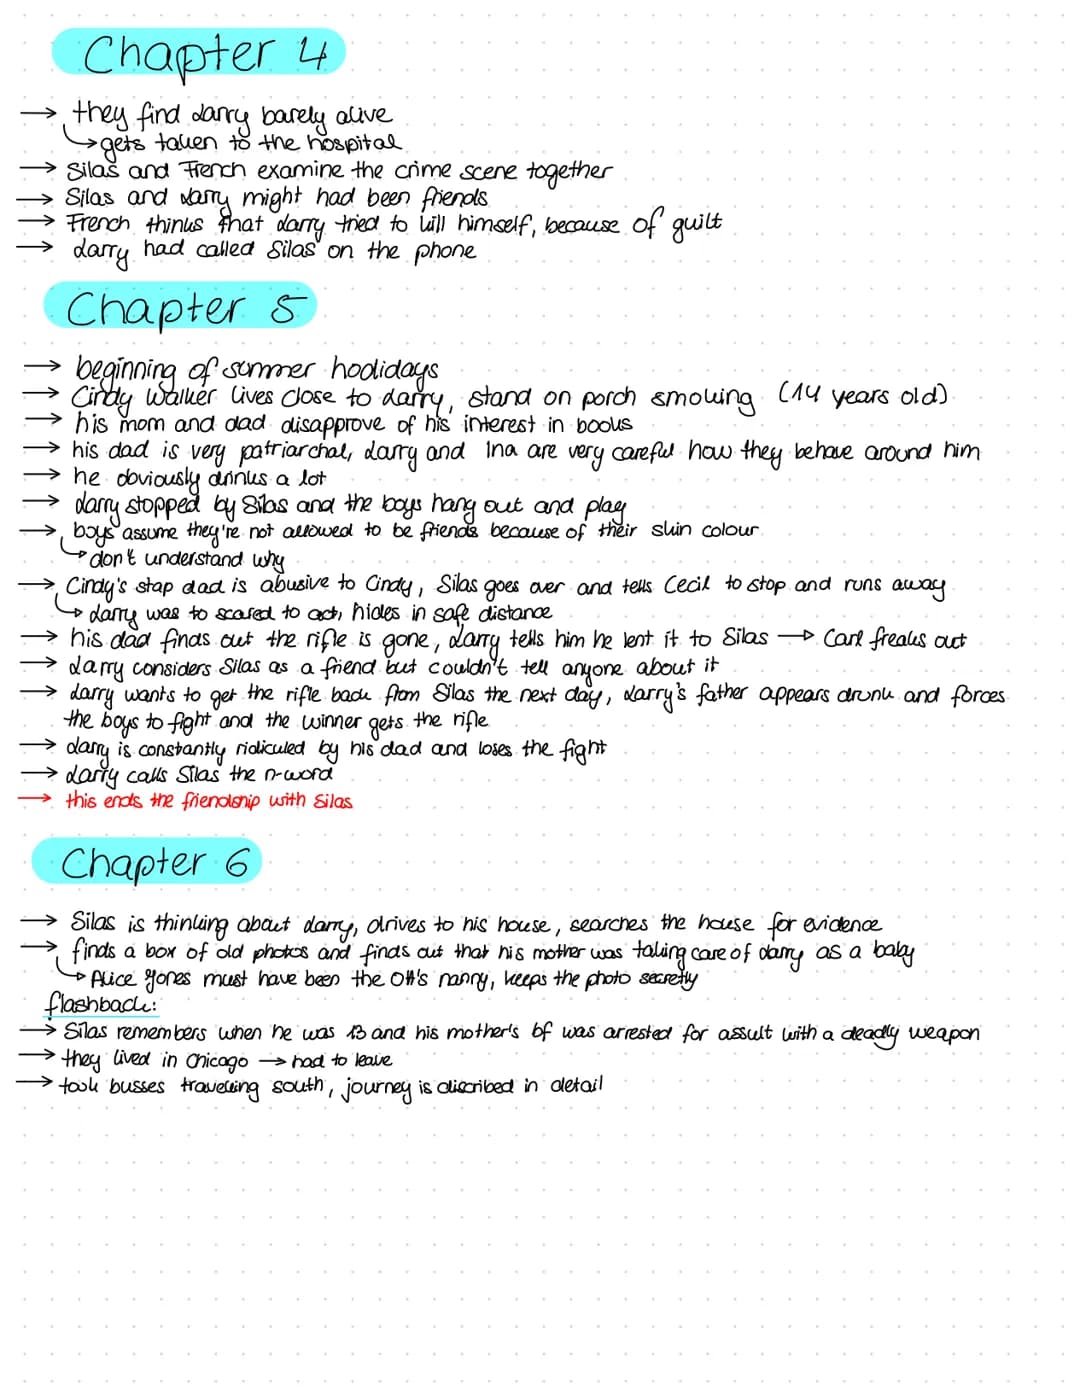 Chapter 4
→ they find Larry barely alive
↳ gets taken to the hospital
→ Silas and French examine the crime scene together
→ Silas and Larry might had been friends
→ French thinks that Larry tried to kill himself, because of guilt
→ Larry had called Silas on the phone
Chapter 5
→ beginning of summer hoolidays
→ Cindy Walker lives close to Larry, stand on porch smoking (14 years old)
→ his mom and dad disapprove of his interest in books
→ his dad is very patriarchal, Larry and Ina are very careful how they behave around him
→ he obviously drinks a lot
→ Larry stopped by Silas and the boys hang out and play
→ boys assume they're not allowed to be friends because of their skin colour
↳ don't understand why
→ Cindy's stap dad is abusive to Cindy, Silas goes over and tells Cecil to stop and runs away
↳ Larry was to scared to act, hides in safe distance
→ his dad finds out the rifle is gone, Larry tells him he lent it to Silas → Carl freaks out
→ Larry considers Silas as a friend but couldn't tell anyone about it
→ Larry wants to get the rifle back from Silas the next day, Larry's father appears drunk and forces
the boys to fight and the winner gets the rifle
→ Larry is constantly ridiculed by his dad and loses the fight
→ Larry calls Silas the n-word
→ this ends the friendship with Silas
Chapter 6
→ Silas is thinking about Larry, drives to his house, searches the house for evidence
→ finds a box of old photos and finds out that his mother was taking care of Larry as a baby
↳ Alice Jones must have been the Ott's nanny, keeps the photo secretly
flashback:
→ Silas remembers when he was 13 and his mother's bf was arrested for assult with a deadly weapon
→ they lived in Chicago → had to leave
→ took busses travelling south, journey is discribed in detail